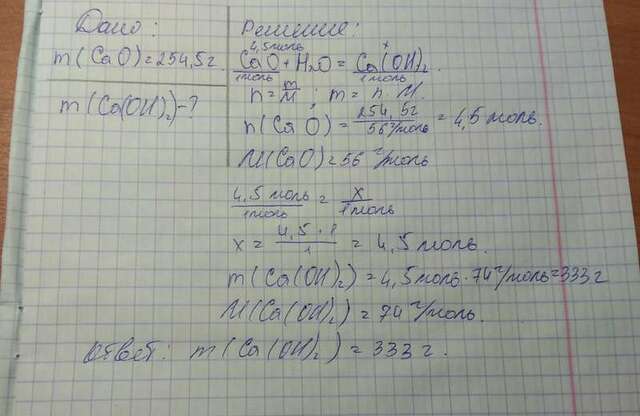 Дано:
m(CaO)=254,5г.
m(Ca(OH)₂)-?
Решение:
4,5моль x
CaO+H₂O=Ca(OH)₂.
1моль 1моль
n=m/M; m=n·M.
n(CaO)=254,5г/56г/моль=4,5моль.
M(CaO)=56г/моль
4,5моль/1моль=x/1моль
x=4,5·1/1=4,5моль.
m(Ca(OH)₂)=4,5моль·74г/моль=333г
M(Ca(OH)₂)=74г/моль.
Ответ: m(Ca(OH)₂)=333г.